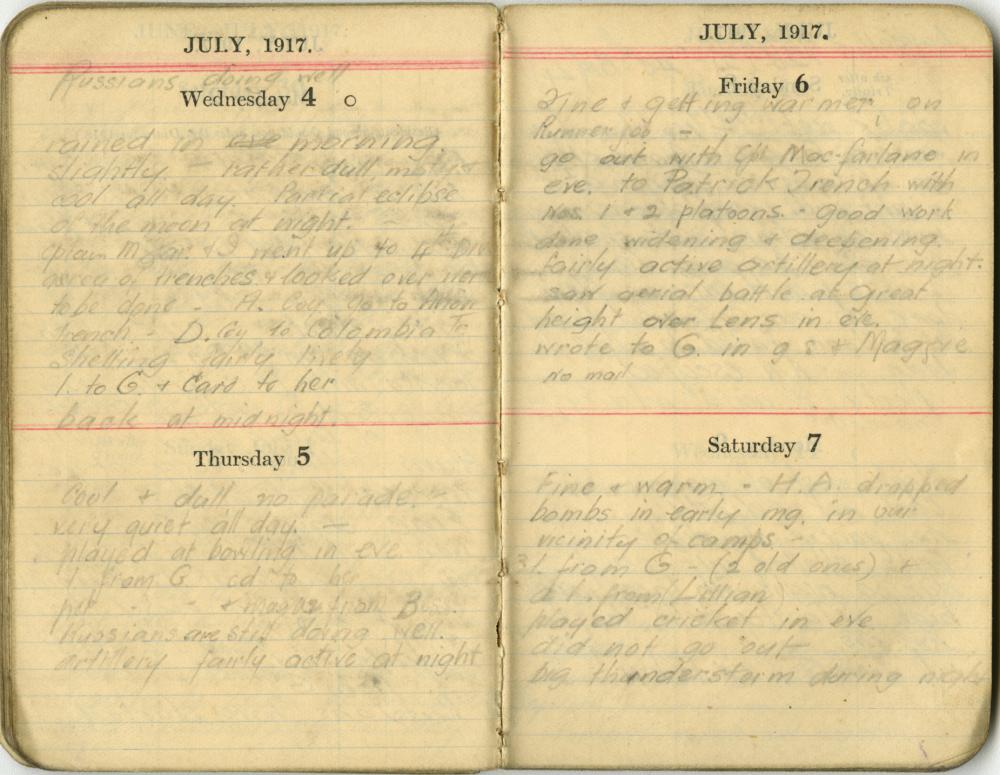 JULY, 1917.
Russians doing well
Wednesday 4
rained in morning.
slightly – rather dull
cool all day. Partial eclipse
of the moon at night.
& I went up to 4th Div
area of trenches & looked over
to be done - A. Coy go to
Trench. D. Coy to Colombia
Shelling fairly lively
1. to G. & Card to her
back at midnight.
Thursday 5
Cool & dull no parade.
very quiet all day. —
played at bowling in eve.
1 from G cd to her
from
Russians are still doing well.
artillery fairly active at night
JULY, 1917.
Friday 6
Fine & getting warmer, on
Runner job –
go out with Cpt Mac-farlane in
eve. to Patrick Trench with
Nos. 1 & 2 platoons. - good work
done widening & deepening.
fairly active artillery at night.
saw aerial battle at Great
height over Lens in eve.
wrote to G. in g s & Maggie
no mail
Saturday 7
Fine & warm - H.A. dropped
bombs in early mg. in our
vicinity of camps -
3 l. from G - (2 old ones) &
a l. from Lillian
played cricket in eve
did not go out
big thunderstorm during night